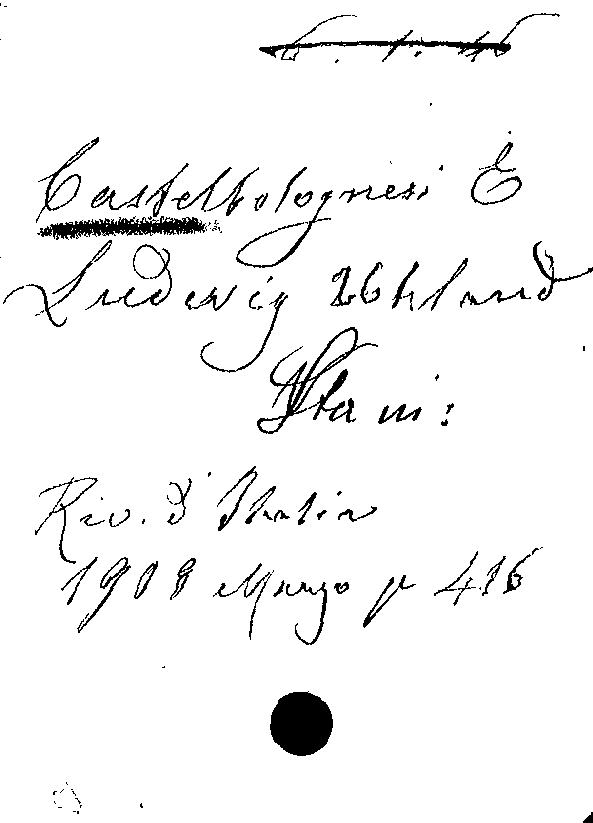 6. 1. 46
Castelbolognesi E
Ludwig Uhland
Riv. d'Italia
1908 Marzo p 416